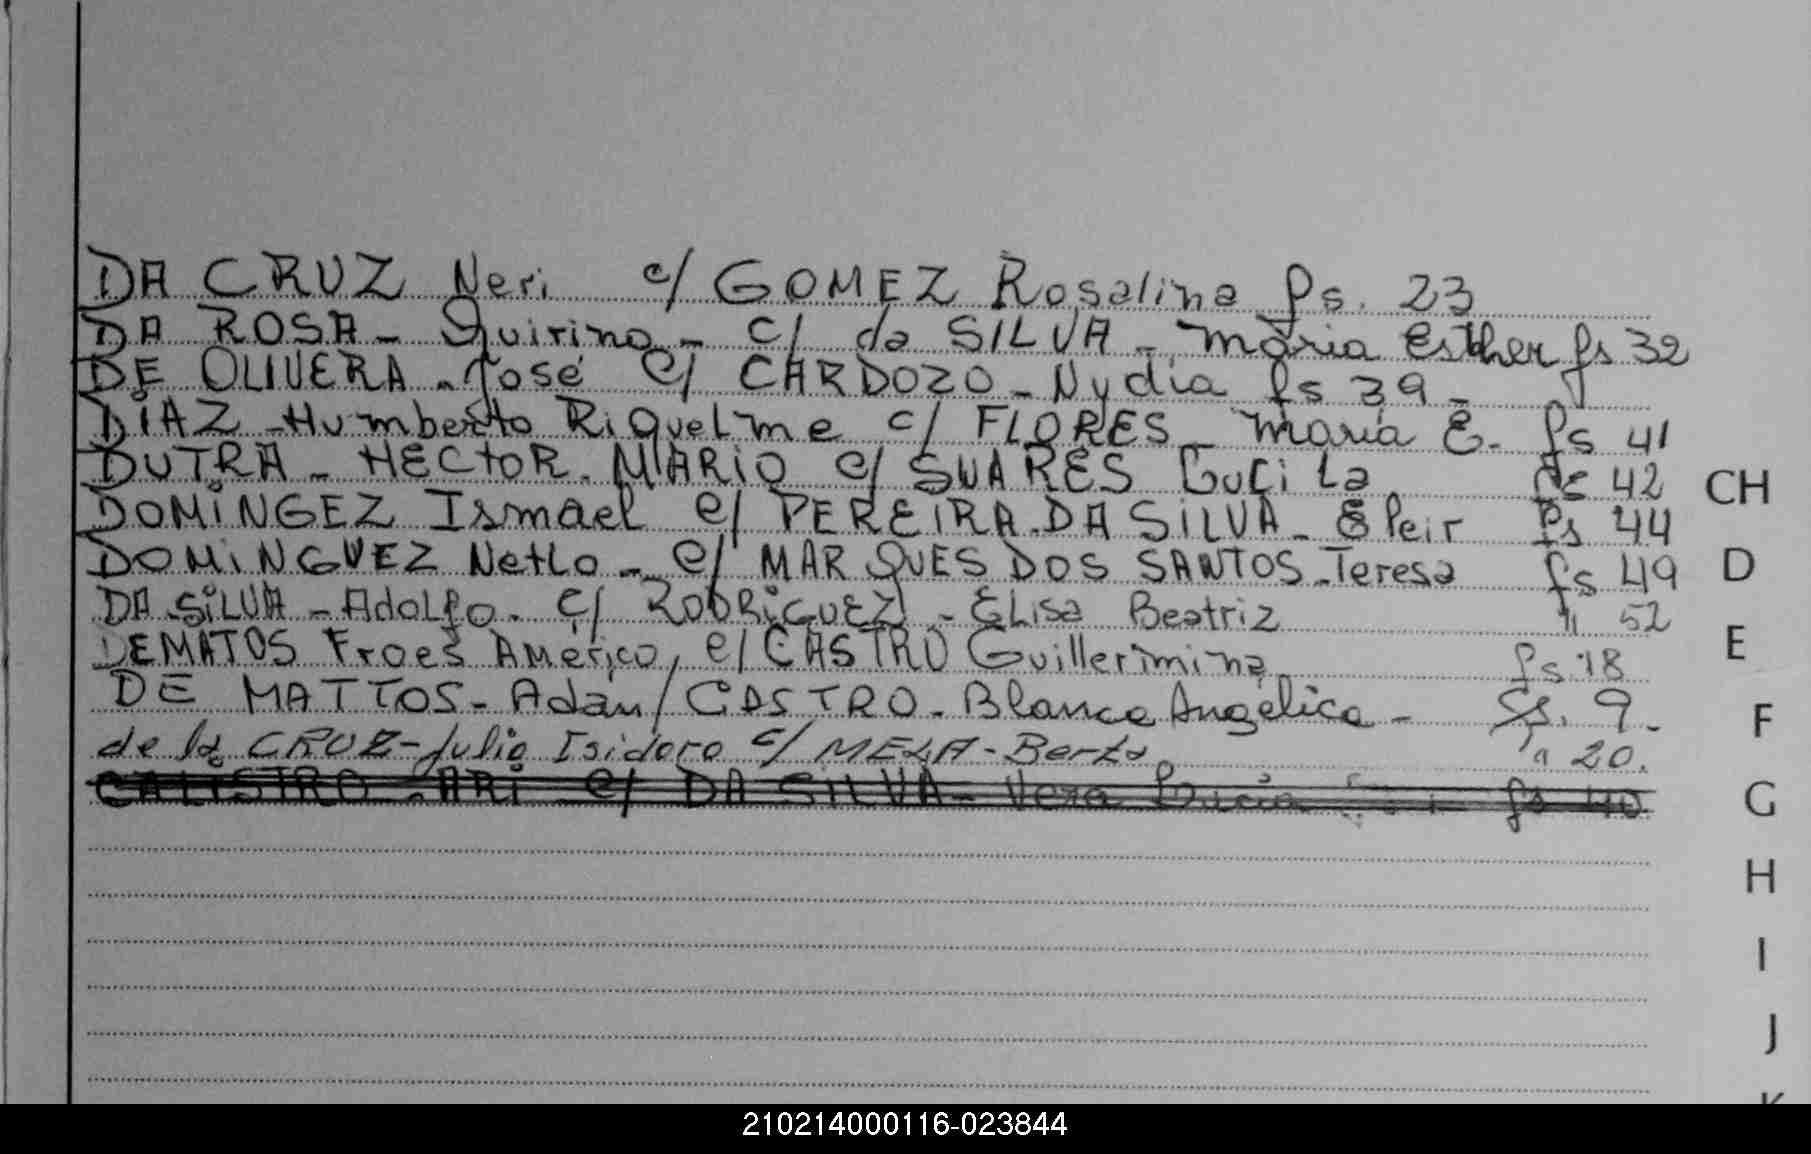 DA CRUZ Neri c/ GOMEZ Rosalina fs. 23
DA ROSA - Quirino - c/ da SILVA - Maria Esther fs 32
DE OLIVERA - José c/ CARDOZO - Nydia fs 39 -
DIAZ - Humberto Riquelme c/ FLORES - Maria E. fs 41
DUTRA - HECTOR. MARIO c/ SUARES Lucila fs 42
CH
DOMINGEZ Ismael c/ PEREIRA. DA SILVA - fs 44
DOMINGUEZ Netto - c/ MARQUES DOS SANTOS - Teresa fs 49
D
DA SILVA - Adolfo. c/ RODRIGUEZ - Elisa Beatriz " 52
E
DEMATOS Froes Américo, c/ CASTRO Guillerimina fs 18
DE MATTOS - Adán / CASTRO - Blanca Angélica - fs. 9 -
F
de la CRUZ - Julio Isidoro c/ MESA - Berta " 20.
CALISTRO - ARI c/ DA SILVA - Vera Lucia fs 40
G
H
I
J
K
210214000116-023844